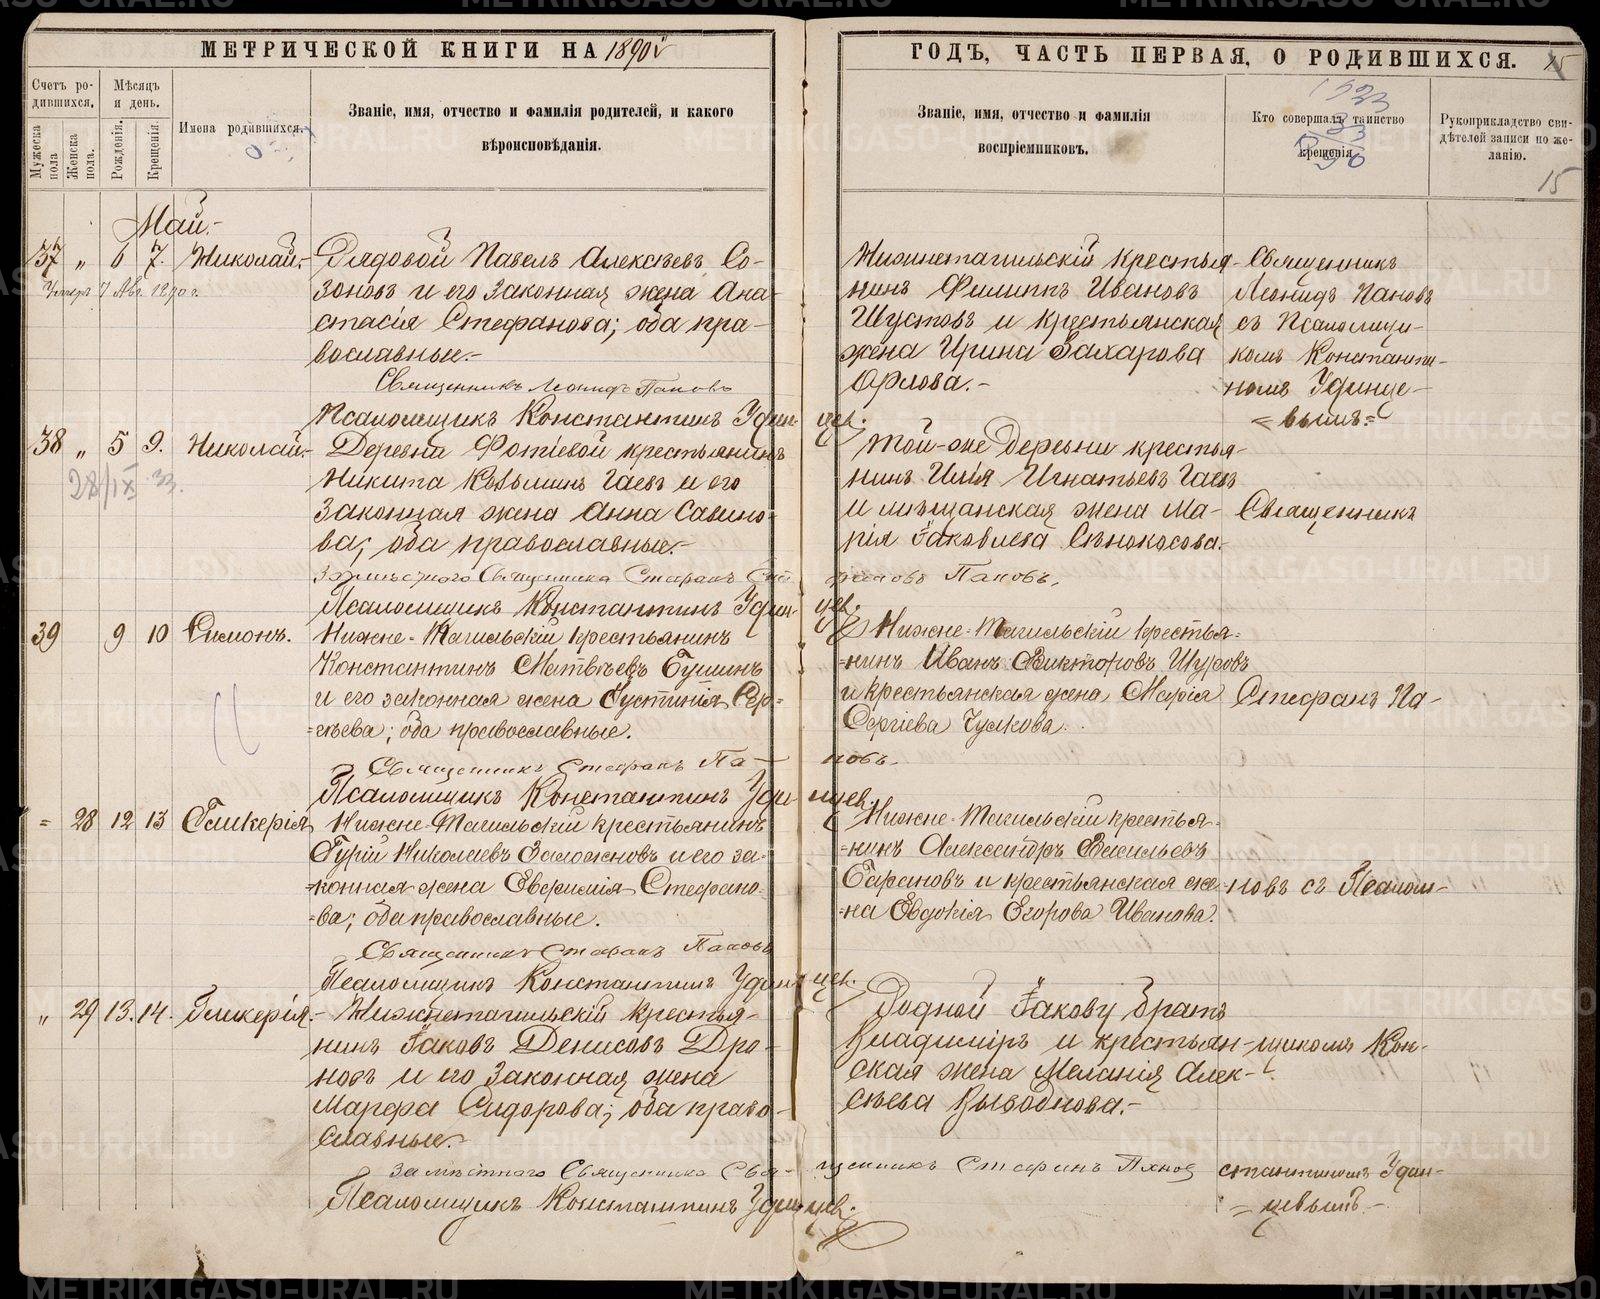 МЕТРИЧЕСКОЙ КНИГИ НА 1890й
ГОДЪ, ЧАСТЬ ПЕРВАЯ, О РОДИВШИХСЯ.
15
Счетъ родившихся.
Мужеска пола
Женска пола.
Мѣсяцъ и день.
Рожденія.
Крещенія.
Имена родившихся.
Званіе, имя, отчество и фамилія родителей, и какого
вѣроисповѣданія.
Званіе, имя, отчество и фамилія
воспріемниковъ.
Кто совершалъ таинство
крещенія
Рукоприкладство сви-
дѣтелей записи по же-
ланію.
15
Май.-
37 „ 6 7. Николай.-
Умеръ 7 Авг. 1890 г.
Рядовой Павелъ Алексѣевъ Со-
зоновъ и его законная жена Ана-
стасія Стефанова; оба пра-
вославные.-
Священникъ Леонидъ Пановъ
Псаломщикъ Константинъ Удинцев.
Нижнетагильскій крестья-
нинъ Филиппъ Ивановъ
Шустовъ и крестьянская
жена Ирина Захарова
Орлова.-
Священникъ
Леонидъ Пановъ
съ Псаломщи-
комъ Константи-
номъ Удинце-
=вымъ=
38 „ 5 9. Николай.-
28/IX 33.
Деревни Фотіевой крестьянинъ
Никита Козьминъ Гаевъ и его
законная жена Анна Савино-
ва; оба православные.-
За мѣстного Священника Стефанъ Пановъ.
Псаломщикъ Константинъ Удинцев.
Той-же деревни крестья-
нинъ Илія Игнатьевъ Гаевъ
и мѣщанская жена Ма-
рія Іаковлева Сѣнокосова.-
Священникъ
39 9 10 Симонъ.
Нижне-Тагильскій крестьянинъ
Константинъ Матвѣевъ Гушинъ
и его законная жена Іустинія Сер-
=гѣева; оба православные.
Священникъ Стефанъ Пановъ.
Псаломщикъ Константинъ Удинцев.
Нижне-Тагильскій крестья=
=нинъ Иванъ Викторовъ Шуровъ
и крестьянская жена Марія
Сергіева Чулкова.
Стефанъ Па-
= 28 12 13 Гликерія
Нижне-Тагильскій крестьянинъ
Гурій Николаевъ Заложновъ и его за-
=конная жена Евфимія Стефано-
=ва; оба православные.
Священникъ Стефанъ Пановъ
Псаломщикъ Константинъ Удинцев.
Нижне-Тагильскій крестья-
=нинъ Александръ Васильевъ
Барановъ и крестьянская же-
=на Евдокія Егорова Иванова.
новъ съ Псалом-
„ 29 13. 14. Гликерія.-
Нижнетагильскій крестья-
нинъ Іаковъ Денисовъ Дро-
новъ и его законная жена
Марфа Сидорова; оба право-
славные.-
За мѣстного Священника Священникъ Стефанъ Панов
Псаломщикъ Константинъ Удинцев.
Родной Іакову братъ
Владиміръ и крестьян-
ская жена Меланія Алек-
сѣева Выводнова.-
щикомъ Кон-
стантиномъ Удин-
=цевымъ.-